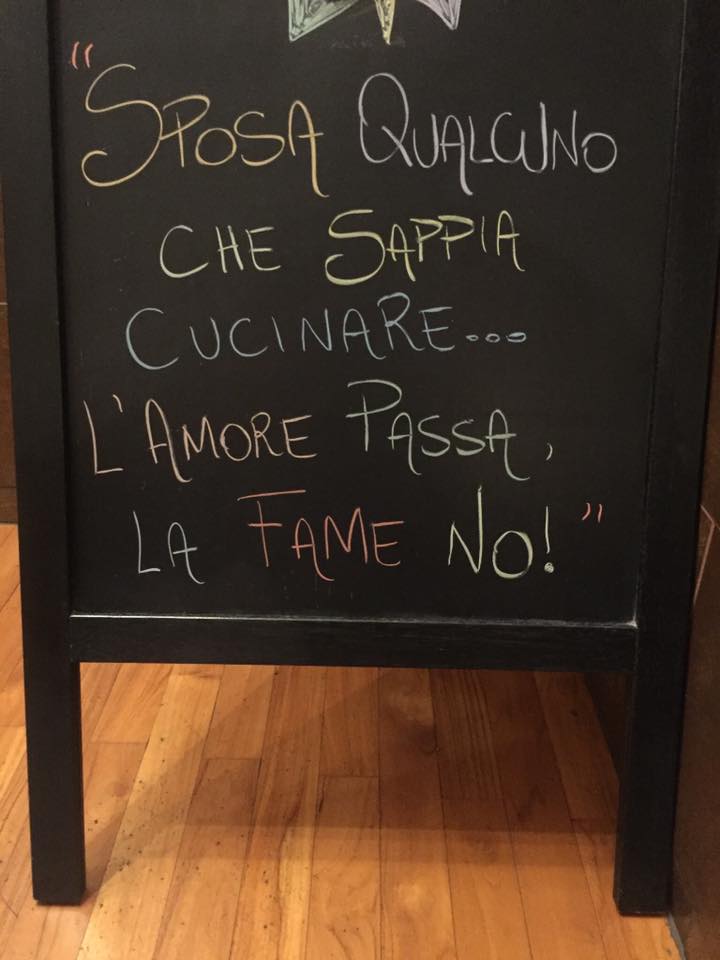 "SPOSA QUALCUNO
CHE SAPPIA
CUCINARE...
L'AMORE PASSA,
LA FAME NO!"